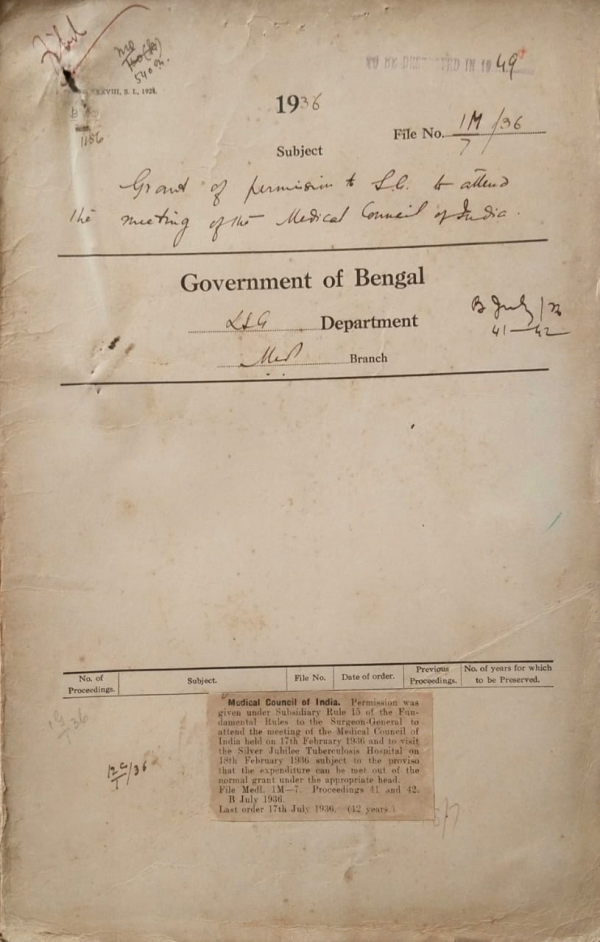 TO BE DESTROYED IN 1949
XXVIII, S. I., 1928.
1936
File No. 1M/7 /36
Subject
Grant of permission to S.G. to attend
the meeting of the Medical Council of India.
Government of Bengal
LSG Department
B July/36
41–42
Med Branch
No. of Proceedings. Subject. File No. Date of order. Previous Proceedings. No. of years for which to be Preserved.
Medical Council of India. Permission was
given under Subsidiary Rule 15 of the Fun-
damental Rules to the Surgeon-General to
attend the meeting of the Medical Council of
India held on 17th February 1936 and to visit
the Silver Jubilee Tuberculosis Hospital on
18th February 1936 subject to the proviso
that the expenditure can be met out of the
normal grant under the appropriate head.
File Medl. 1M—7. Proceedings 41 and 42.
B July 1936.
Last order 17th July 1936. (12 years.)